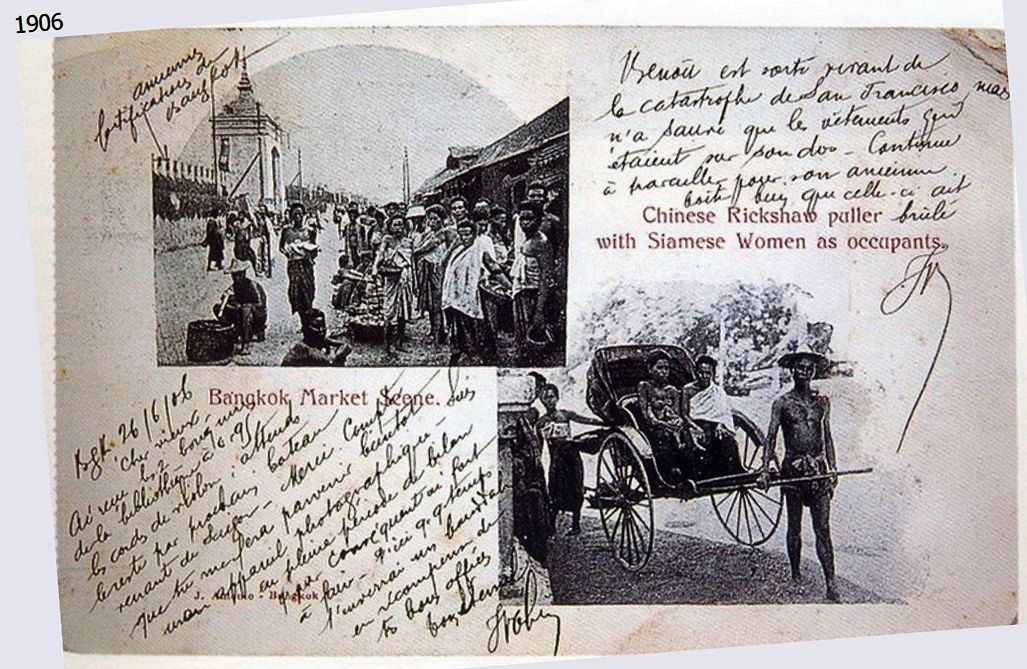 1906
anciennes
fortifications de
Bangkok
Benoît est sorti vivant de
la catastrophe de San Francisco, mais
n'a sauvé que les vêtements qui
étaient sur son dos - Continue
à travailler pour son ancienne
boîte, bien que celle-ci ait
brûlé
Chinese Rickshaw puller
with Siamese Women as occupants.
Bangkok Market Scene.
Bgk. 26/6/06
cher vieux
Ai reçu les bouquins
de la bibliothèque
les cords de violon; attends
le reste par prochain bateau
venant de Saigon - Merci. Compte
que tu me feras parvenir bientôt
mon appareil photographique -
en pleine période de bilan
par conséquent ai fort
à faire - D'ici q.q. temps
t'enverrai un
en récompense de
ts bons offices
J. Antonio - Bangkok